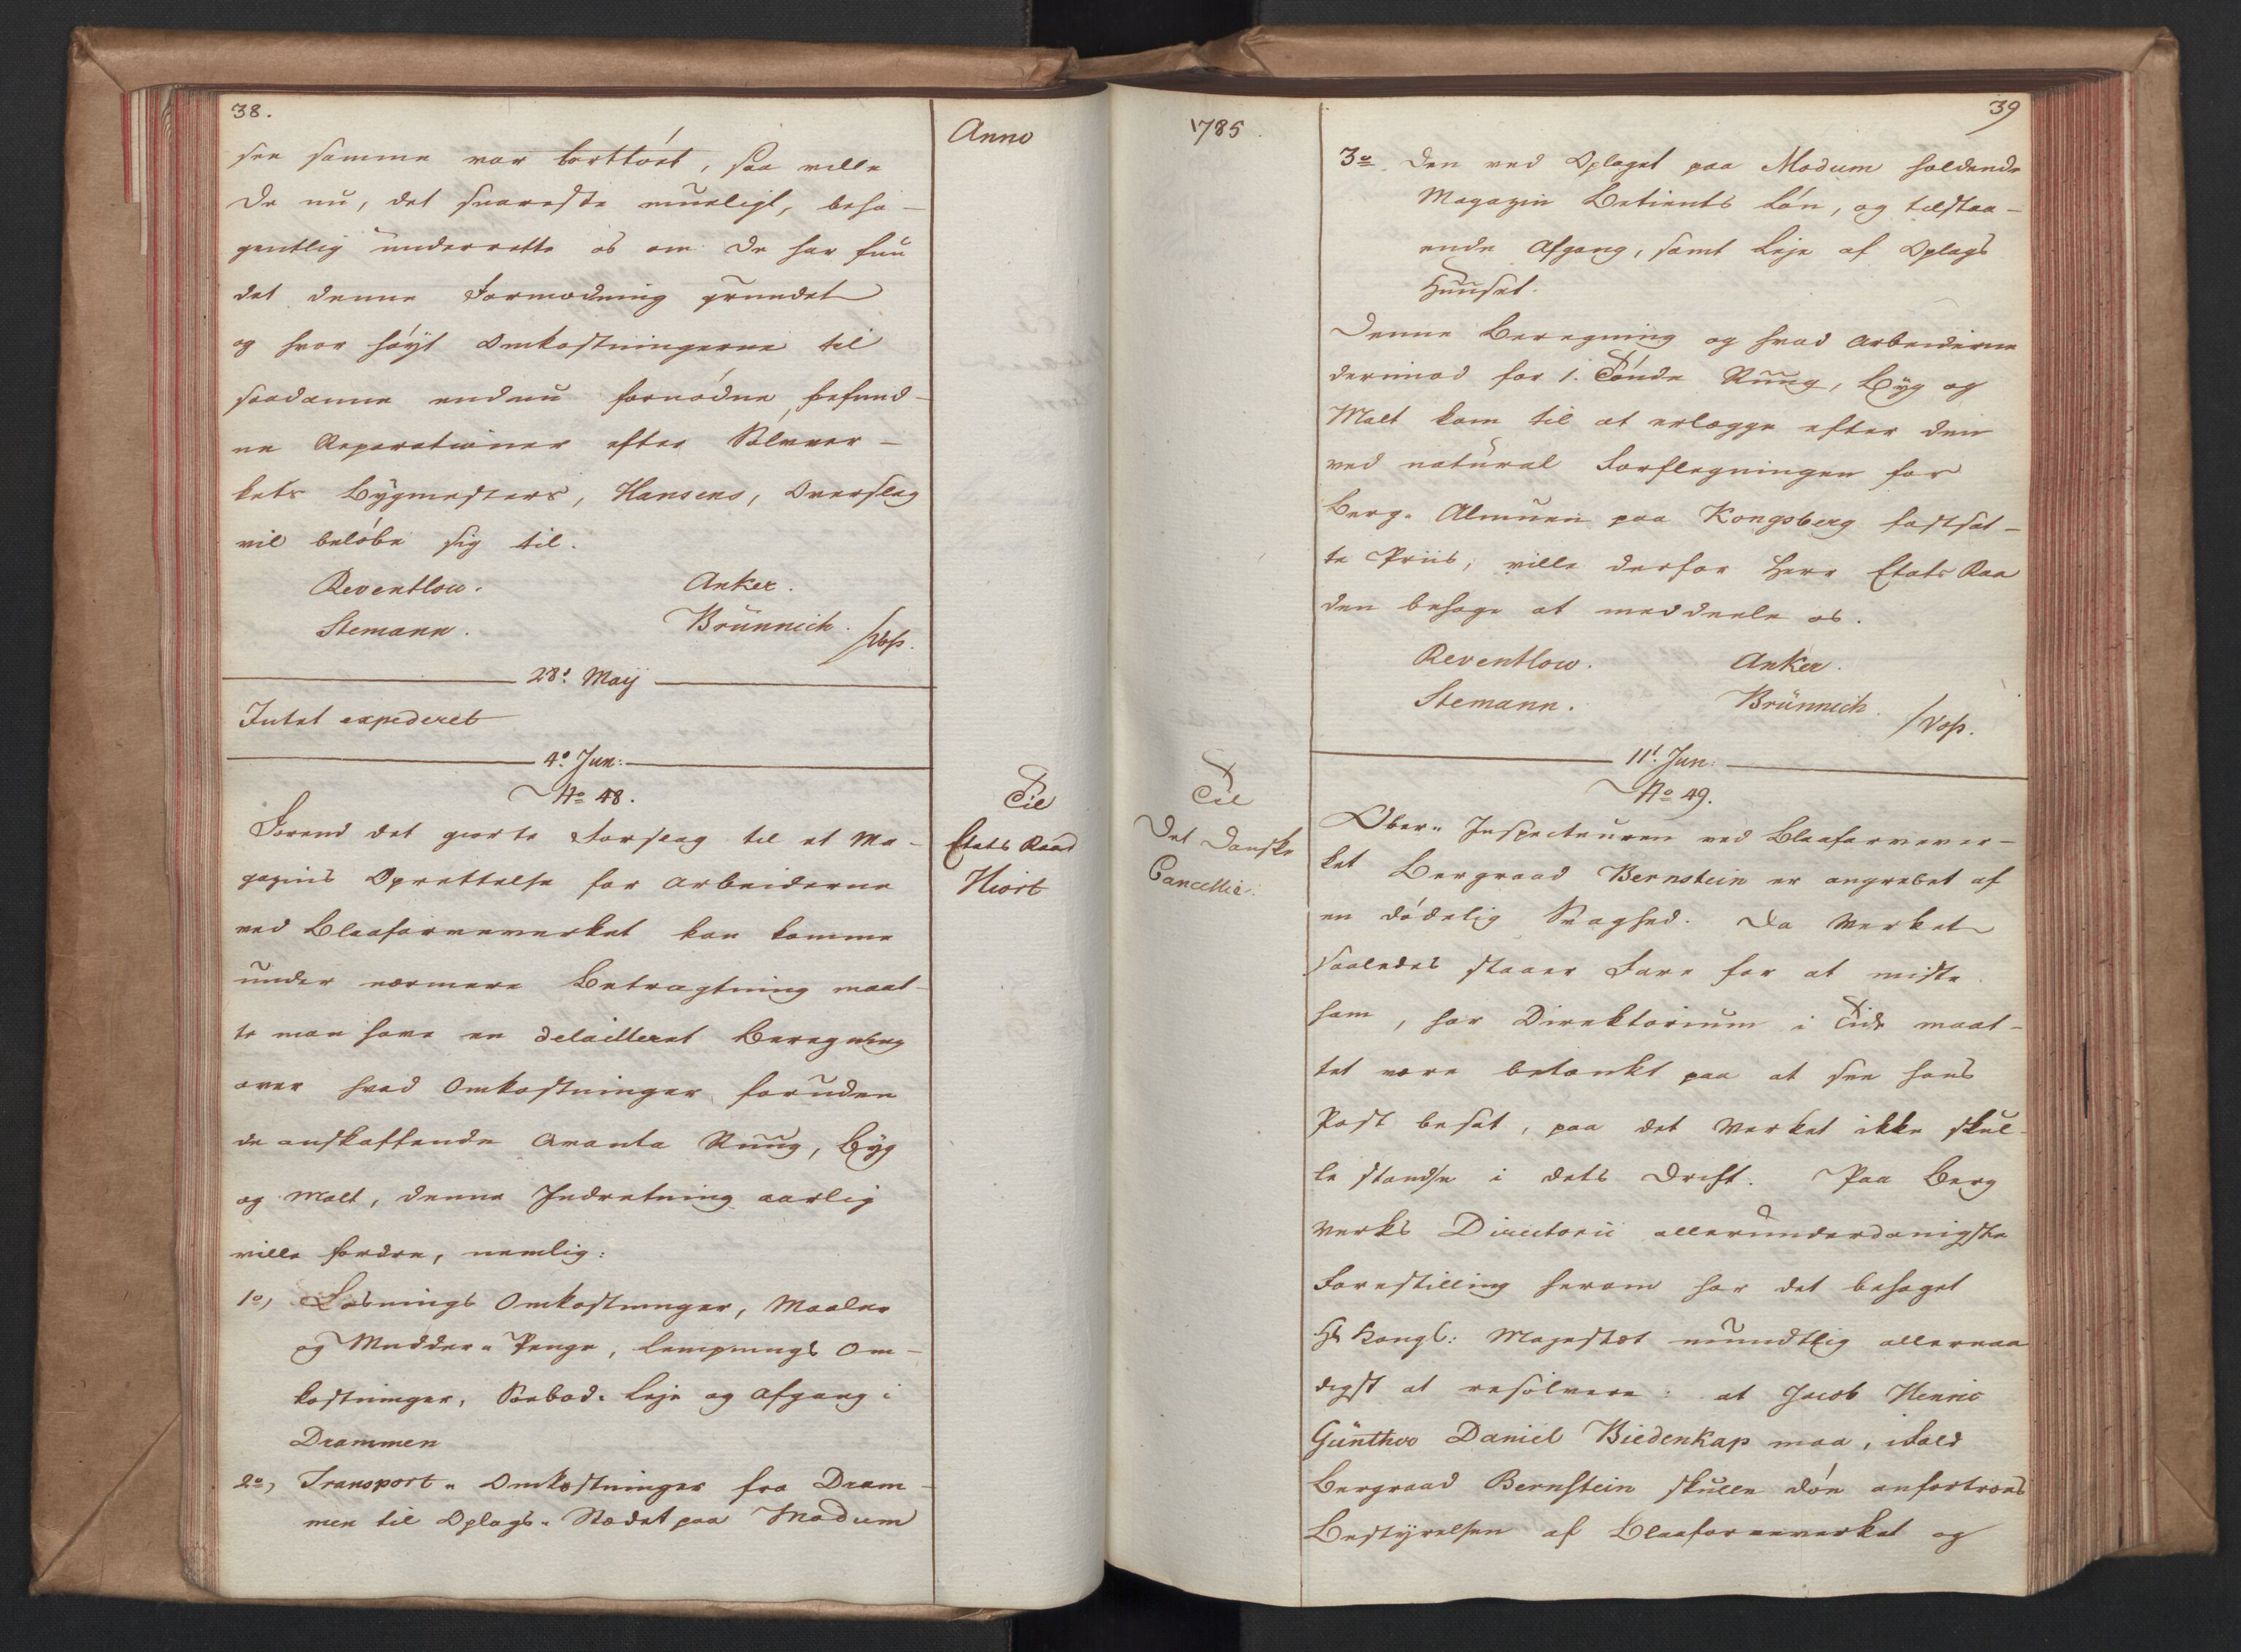 38.
Anno
see samme var borttört, saa ville
De nu, det snareste mueligt, beha-
gentlig underrette os om De har fun
det denne Formodning grundet
og hvor höyt Omkostningerne til
saadanne endnu fornödne befund-
ne Reparationer efter Sölvver-
kets Bÿgmesters, Hansens, Overslag
vil belöbe sig til.
Reventlow. Anker.
Stemann. Brünnich.
/Vosz.
28d Maij
Intet expederet
4d Jun:
No 48.
Til
Etats Raad
Hiort
Forend det giorte Forslag til et Ma-
gazins Oprettelse for Arbeiderne
ved Blaafarveverket kan komme
under nærmere Betragtning maat-
te man have en detailleret Beregning
over hvad Omkostninger foruden
de anskaffende Qvanta Ruug, Bÿg
og Malt, denne Indretning aarlig
ville fordre, nemlig:
1o, Losnings Omkostninger, Maaler
og Mudder- Penge, Lempnings Om-
kostninger, Söebod- Leje og Afgang i
Drammen
2o, Transport- Omkostninger fra Dram-
men til Oplags- Stædet paa Modum
1785.
39
3o Den ved Oplaget paa Modum holdende
Magazin Betients Lön, og tilstaa-
ende Afgang, samt Leje af Oplags
Huuset.
Denne Beregning og hvad Arbeiderne
derimod for 1. Tönde Ruug, Bÿg og
Malt kom til at erlægge efter den
ved natural Forflegningen for
Berg- Almuen paa Kongsberg fastsat-
te Priis, ville derfor Herr Etats Raa
den behage at meddeele os.
Reventlow. Anker.
Stemann. Brünnich.
/Vosz.
11t Jun:
No 49.
Til
Det Danske
Cancellie.
Ober- Inspecteuren ved Blaafarvever-
ket Bergraad Bernstein er angrebet af
en dödelig Svaghed. Da Verket
saaledes staaer Fare for at miste
ham, har Direktorium i Tide maat-
tet være betænkt paa at see hans
Post besat, paa det Verket ikke skul-
le standse i dets Drift. Paa Berg
Verks Directorii allerunderdanigste
Forestilling herom har det behaget
Hs Kongl: Majestæt mundtlig allernaa
digst at resolvere: at Jacob Henric
Günther Daniel Biedenkap maa, ifald
Bergraad Bernstein skulle döe anfortroes
Bestÿrelsen af Blaafarveverket og